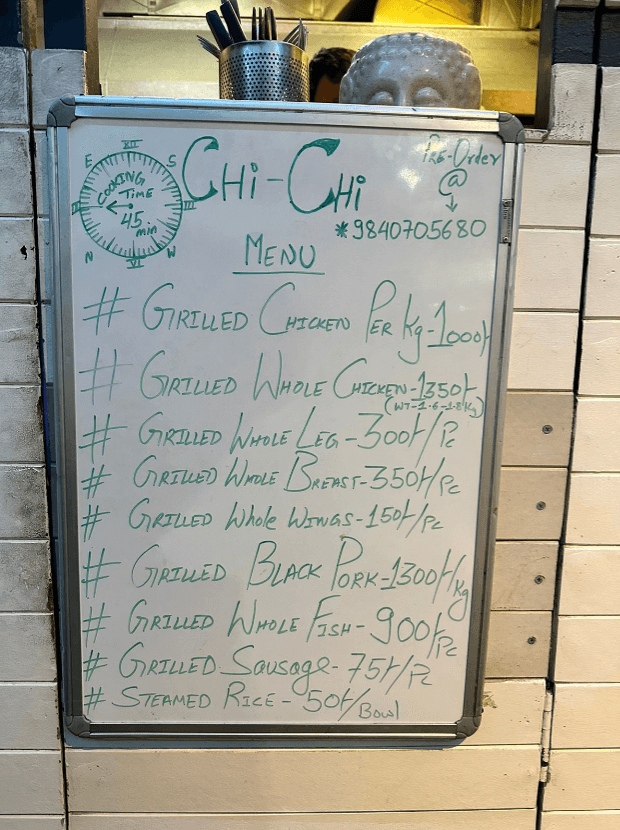 XII
E S
COOKING
TIME
45
min
III
N W
VI
CHi-CHi
PRE-ORDER
@
*9840705680
MENU
# GRILLED CHICKEN PER Kg-1000/-
# GRILLED WHOLE CHICKEN-1350/-
(WT-1.6-1.8Kg)
# GRILLED WHOLE LEG-300/-/Pc
# GRILLED WHOLE BREAST-350/-/Pc
# GRILLED Whole WINGS-150/-/Pc
# GRILLED BLACK PORK-1300/-/Kg
# GRILLED WHOLE FISH-900/-/Pc
# GRILLED Sausage-75/-/Pc
# STEAMED RICE-50/-/Bowl